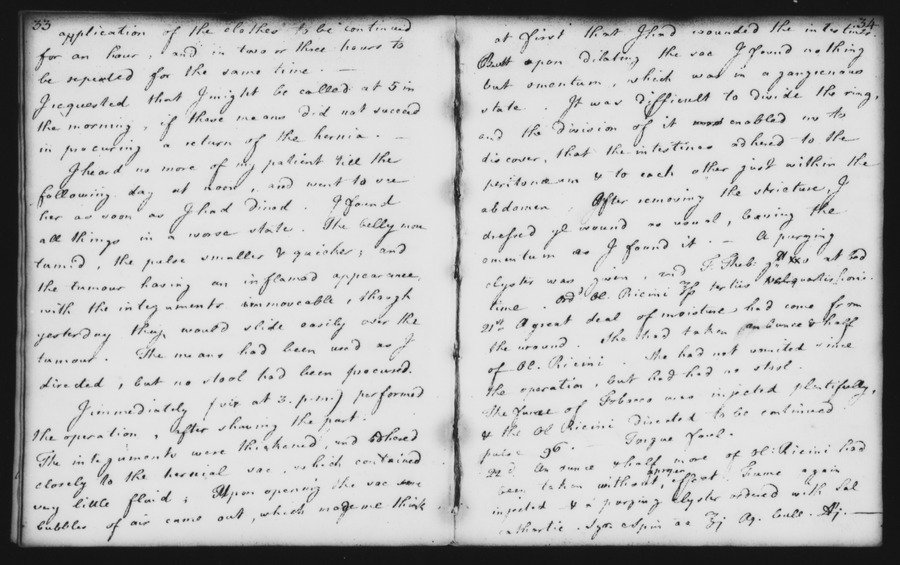 33
application of the clothes to be continued
for an hour, and in two or three hours to
be repeated for the same time. —
I requested that I might be called at 5 in
the morning, if these means did not succeed
in procuring a return of the hernia. —
I heard no more of my patient till the
following day at noon, and went to see
her as soon as I had dined. I found
all things in a worse state. The belly more
tumid, the pulse smaller & quicker; and
the tumour having an inflamed appearance,
with the integuments immoveable, though
yesterday they would slide easily over the
tumour. The means had been used as I
directed, but no stool had been procured.
I immediately (viz at 3. p.m.) performed
the operation, after shaving the part.
The integuments were thickened, and adhered
closely to the hernial sac, which contained
very little fluid; Upon opening the sac some
bubbles of air came out, which made me think
34
at first that I had wounded the intestines.
But upon dilating the sac I found nothing
but omentum, which was in a gangrenous
state. It was difficult to divide the ring,
and the division of it enabled me to
discover, that the intestines adhered to the
peritonaeum & to each other just within the
abdomen. After removing the stricture, I
dressed ye wound as usual, leaving the
omentum as I found it. — A purging
clyster was given, and T. Theb. at bed
time. Ol. Ricini
21st A great deal of moisture had come from
the wound. She had taken an ounce & half
of Ol. Ricini. She had not vomited since
the operation, but had had no stool.
The fume of Tobacco was injected plentifully,
& the Ol Ricini directed to be continued
pulse 96. — Tongue foul.
22d An ounce & half more of Ol: Ricini had
been taken without effect. Fume again
injected & a purging clyster ordered with Sal